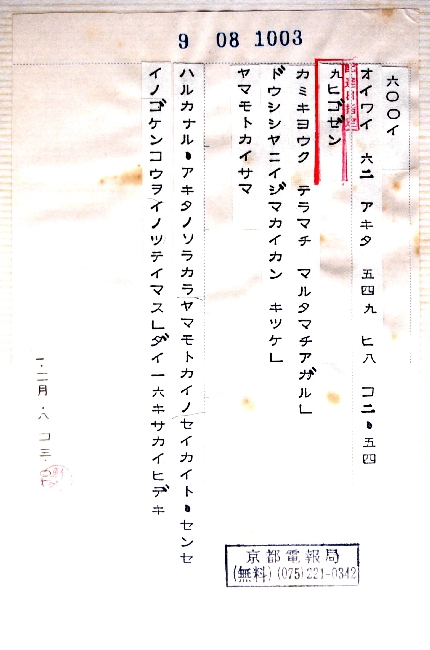 9 08 1003
六〇〇イ
オイワイ 六二 アキタ 五四九 ヒ八 コニ、五四
配達日指定
九ヒゴゼン
カミキヨウク テラマチ マルタマチアガル」
ドウシシヤニイジマカイカン キツケ」
ヤマモトカイサマ
ハルカナル、アキタノソラカラヤマモトカイノセイカイト、センセ
イノゴケンコウヲイノツテイマス」ダイ一六キサカイヒデキ
京都電報局
(無料)(075)221-0342